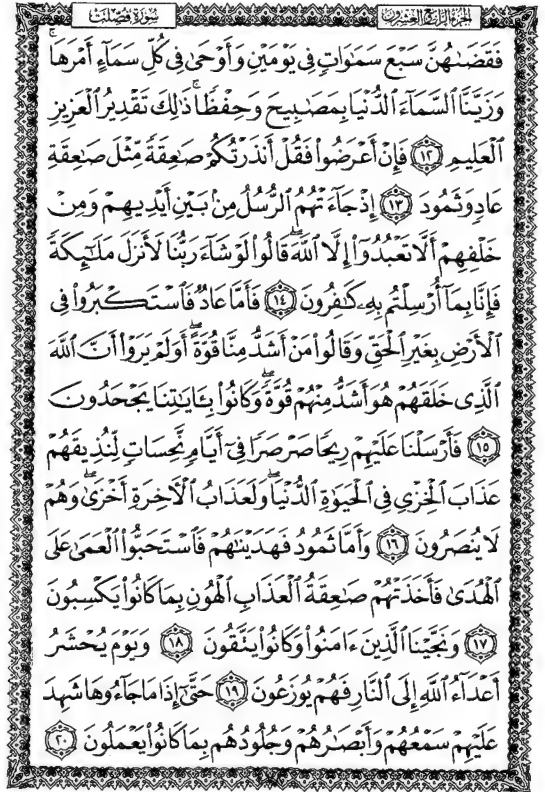 سُورَةُ فُصِّلَتْ الجزء الرابع العشرون
فَقَضَىٰهُنَّ سَبْعَ سَمَٰوَاتٍ فِى يَوْمَيْنِ وَأَوْحَىٰ فِى كُلِّ سَمَآءٍ أَمْرَهَا ۚ
وَزَيَّنَّا ٱلسَّمَآءَ ٱلدُّنْيَا بِمَصَٰبِيحَ وَحِفْظًا ۚ ذَٰلِكَ تَقْدِيرُ ٱلْعَزِيزِ
ٱلْعَلِيمِ ١٢ فَإِنْ أَعْرَضُوا۟ فَقُلْ أَنذَرْتُكُمْ صَٰعِقَةً مِّثْلَ صَٰعِقَةِ
عَادٍ وَثَمُودَ ١٣ إِذْ جَآءَتْهُمُ ٱلرُّسُلُ مِنۢ بَيْنِ أَيْدِيهِمْ وَمِنْ
خَلْفِهِمْ أَلَّا تَعْبُدُوٓا۟ إِلَّا ٱللَّهَ ۖ قَالُوا۟ لَوْ شَآءَ رَبُّنَا لَأَنزَلَ مَلَٰٓئِكَةً
فَإِنَّا بِمَآ أُرْسِلْتُم بِهِۦ كَٰفِرُونَ ١٤ فَأَمَّا عَادٌ فَٱسْتَكْبَرُوا۟ فِى
ٱلْأَرْضِ بِغَيْرِ ٱلْحَقِّ وَقَالُوا۟ مَنْ أَشَدُّ مِنَّا قُوَّةً ۖ أَوَلَمْ يَرَوْا۟ أَنَّ ٱللَّهَ
ٱلَّذِى خَلَقَهُمْ هُوَ أَشَدُّ مِنْهُمْ قُوَّةً ۖ وَكَانُوا۟ بِـَٔايَٰتِنَا يَجْحَدُونَ
١٥ فَأَرْسَلْنَا عَلَيْهِمْ رِيحًا صَرْصَرًا فِىٓ أَيَّامٍ نَّحِسَاتٍ لِّنُذِيقَهُمْ
عَذَابَ ٱلْخِزْىِ فِى ٱلْحَيَوٰةِ ٱلدُّنْيَا ۖ وَلَعَذَابُ ٱلْءَاخِرَةِ أَخْزَىٰ ۖ وَهُمْ
لَا يُنصَرُونَ ١٦ وَأَمَّا ثَمُودُ فَهَدَيْنَٰهُمْ فَٱسْتَحَبُّوا۟ ٱلْعَمَىٰ عَلَى
ٱلْهُدَىٰ فَأَخَذَتْهُمْ صَٰعِقَةُ ٱلْعَذَابِ ٱلْهُونِ بِمَا كَانُوا۟ يَكْسِبُونَ
١٧ وَنَجَّيْنَا ٱلَّذِينَ ءَامَنُوا۟ وَكَانُوا۟ يَتَّقُونَ ١٨ وَيَوْمَ يُحْشَرُ
أَعْدَآءُ ٱللَّهِ إِلَى ٱلنَّارِ فَهُمْ يُوزَعُونَ ١٩ حَتَّىٰٓ إِذَا مَا جَآءُوهَا شَهِدَ
عَلَيْهِمْ سَمْعُهُمْ وَأَبْصَٰرُهُمْ وَجُلُودُهُم بِمَا كَانُوا۟ يَعْمَلُونَ ٢٠